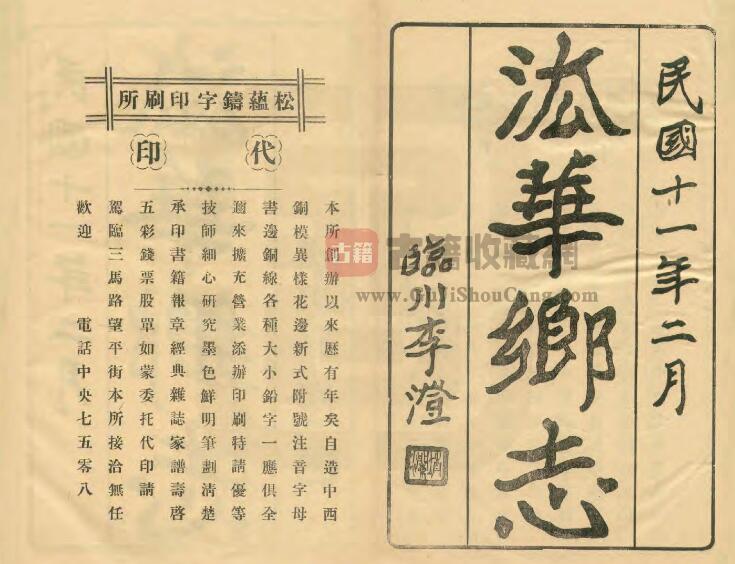 民國十一年二月
法華鄉志
臨川李澄
松蘊鑄字印刷所
代印
本所創辦以來歷有年矣自造中西
銅模異樣花邊新式附號注音字母
書邊銅線各種大小鉛字一應俱全
邇來擴充營業添辦印刷特請優等
技師細心研究墨色鮮明筆劃清楚
承印書籍報章經典雜誌家譜壽啓
五彩錢票股單如蒙委托代印請
駕臨三馬路望平街本所接洽無任
歡迎 電話中央七五零八
古籍 古籍收藏網
www.GuJiShouCang.com